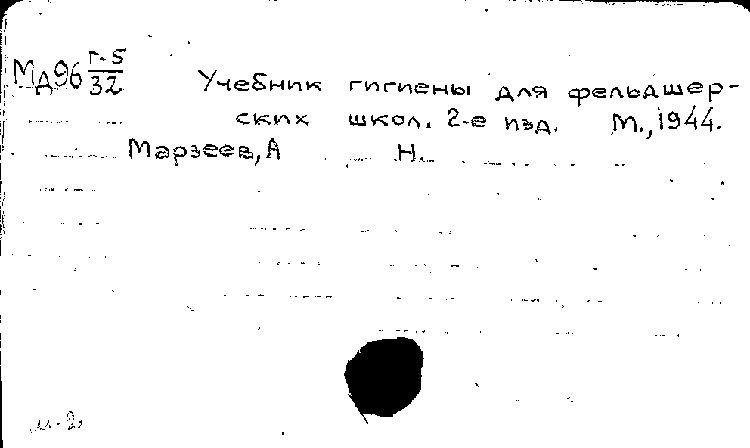 Мд96 Г-5/32
Учебник гигиены для фельдшер-
ских школ. 2-е изд. М., 1944.
Марзеев, А Н.